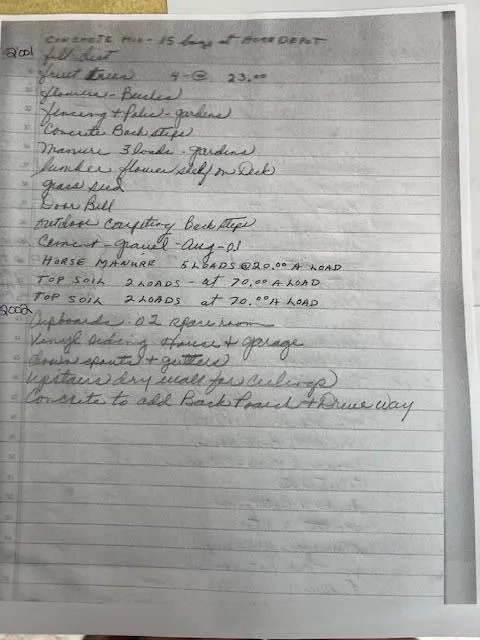 CONCRETE MIX - 15 bags at HOME DEPOT
2001
fill dirt
fruit trees 4 - @ 23.00
flowers - Bushes
fencing + Poles - gardens
Concrete Back steps
Manure 3 loads - gardens
lumber flower shelf on Deck
grass seed
Door Bell
outdoor carpeting Back steps
Cement - gravel - Aug - 01
HORSE MANURE 5 LOADS @ 20.00 A LOAD
TOP SOIL 2 LOADS - at 70.00 A LOAD
TOP SOIL 2 LOADS at 70.00 A LOAD
2002
Cupboards 02 room
Vinyl siding House + garage
down spouts + gutters
Upstairs dry wall for Ceilings
Concrete to add Back Poarch + Drive way